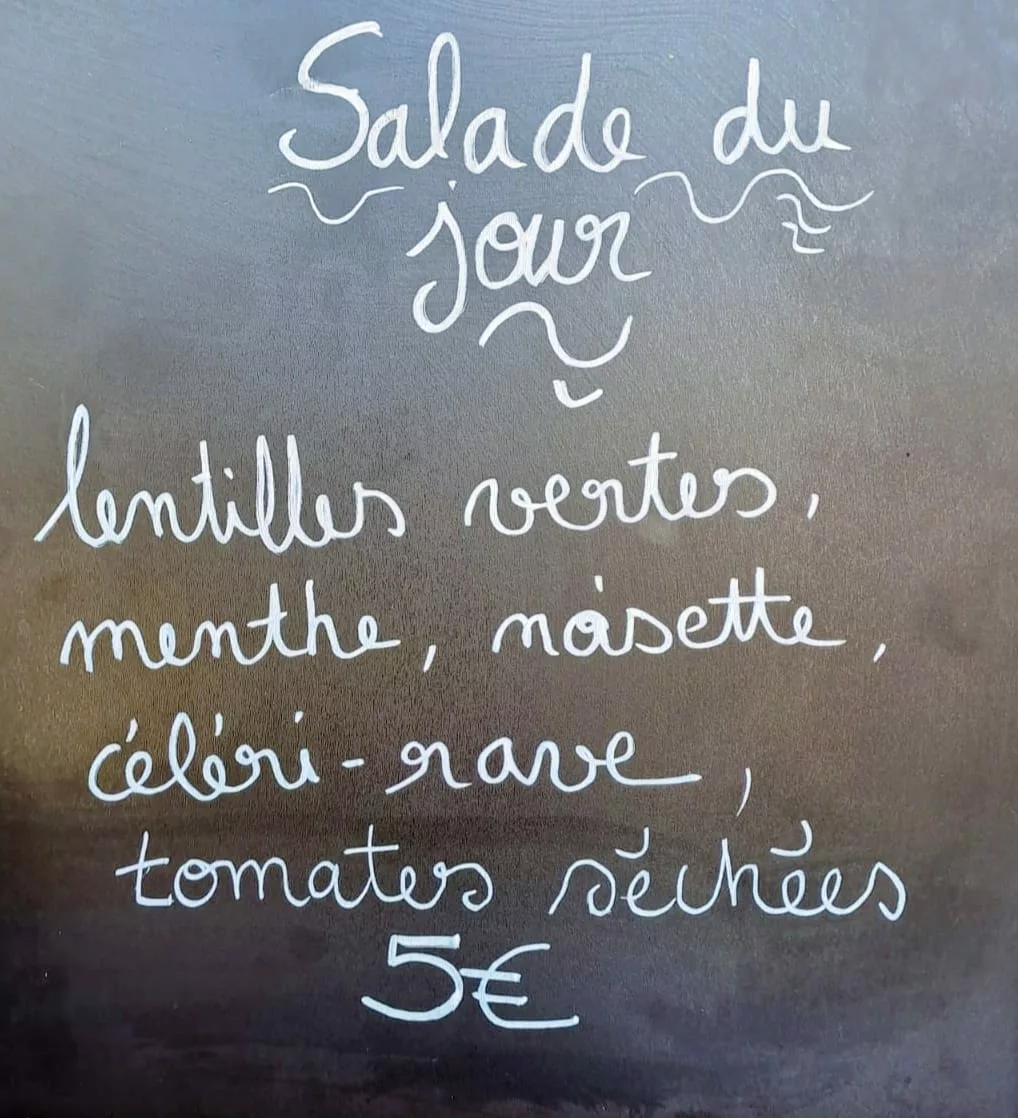 Salade du
jour
lentilles vertes,
menthe, noisette,
céléri-rave,
tomates séchées
5€